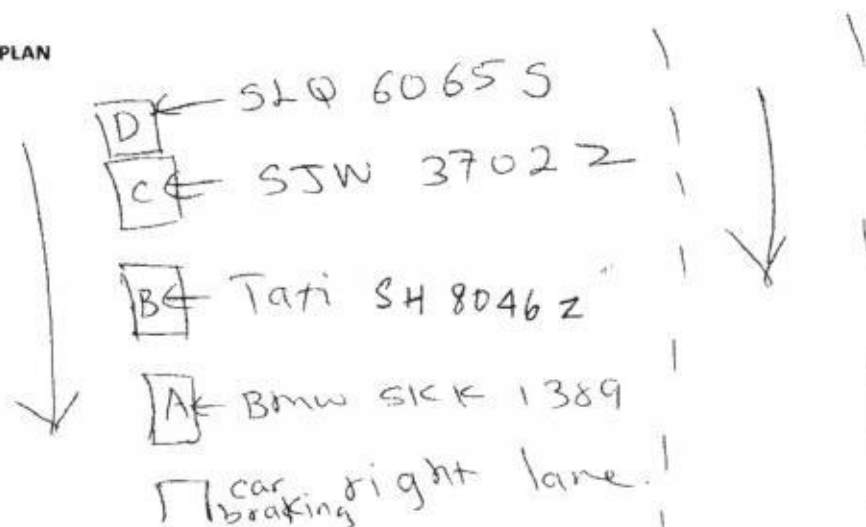 PLAN
D SLQ 6065 S
C SJW 3702 Z
B Taxi SH 8046 Z
A BMW SKK 1389
car braking right lane.